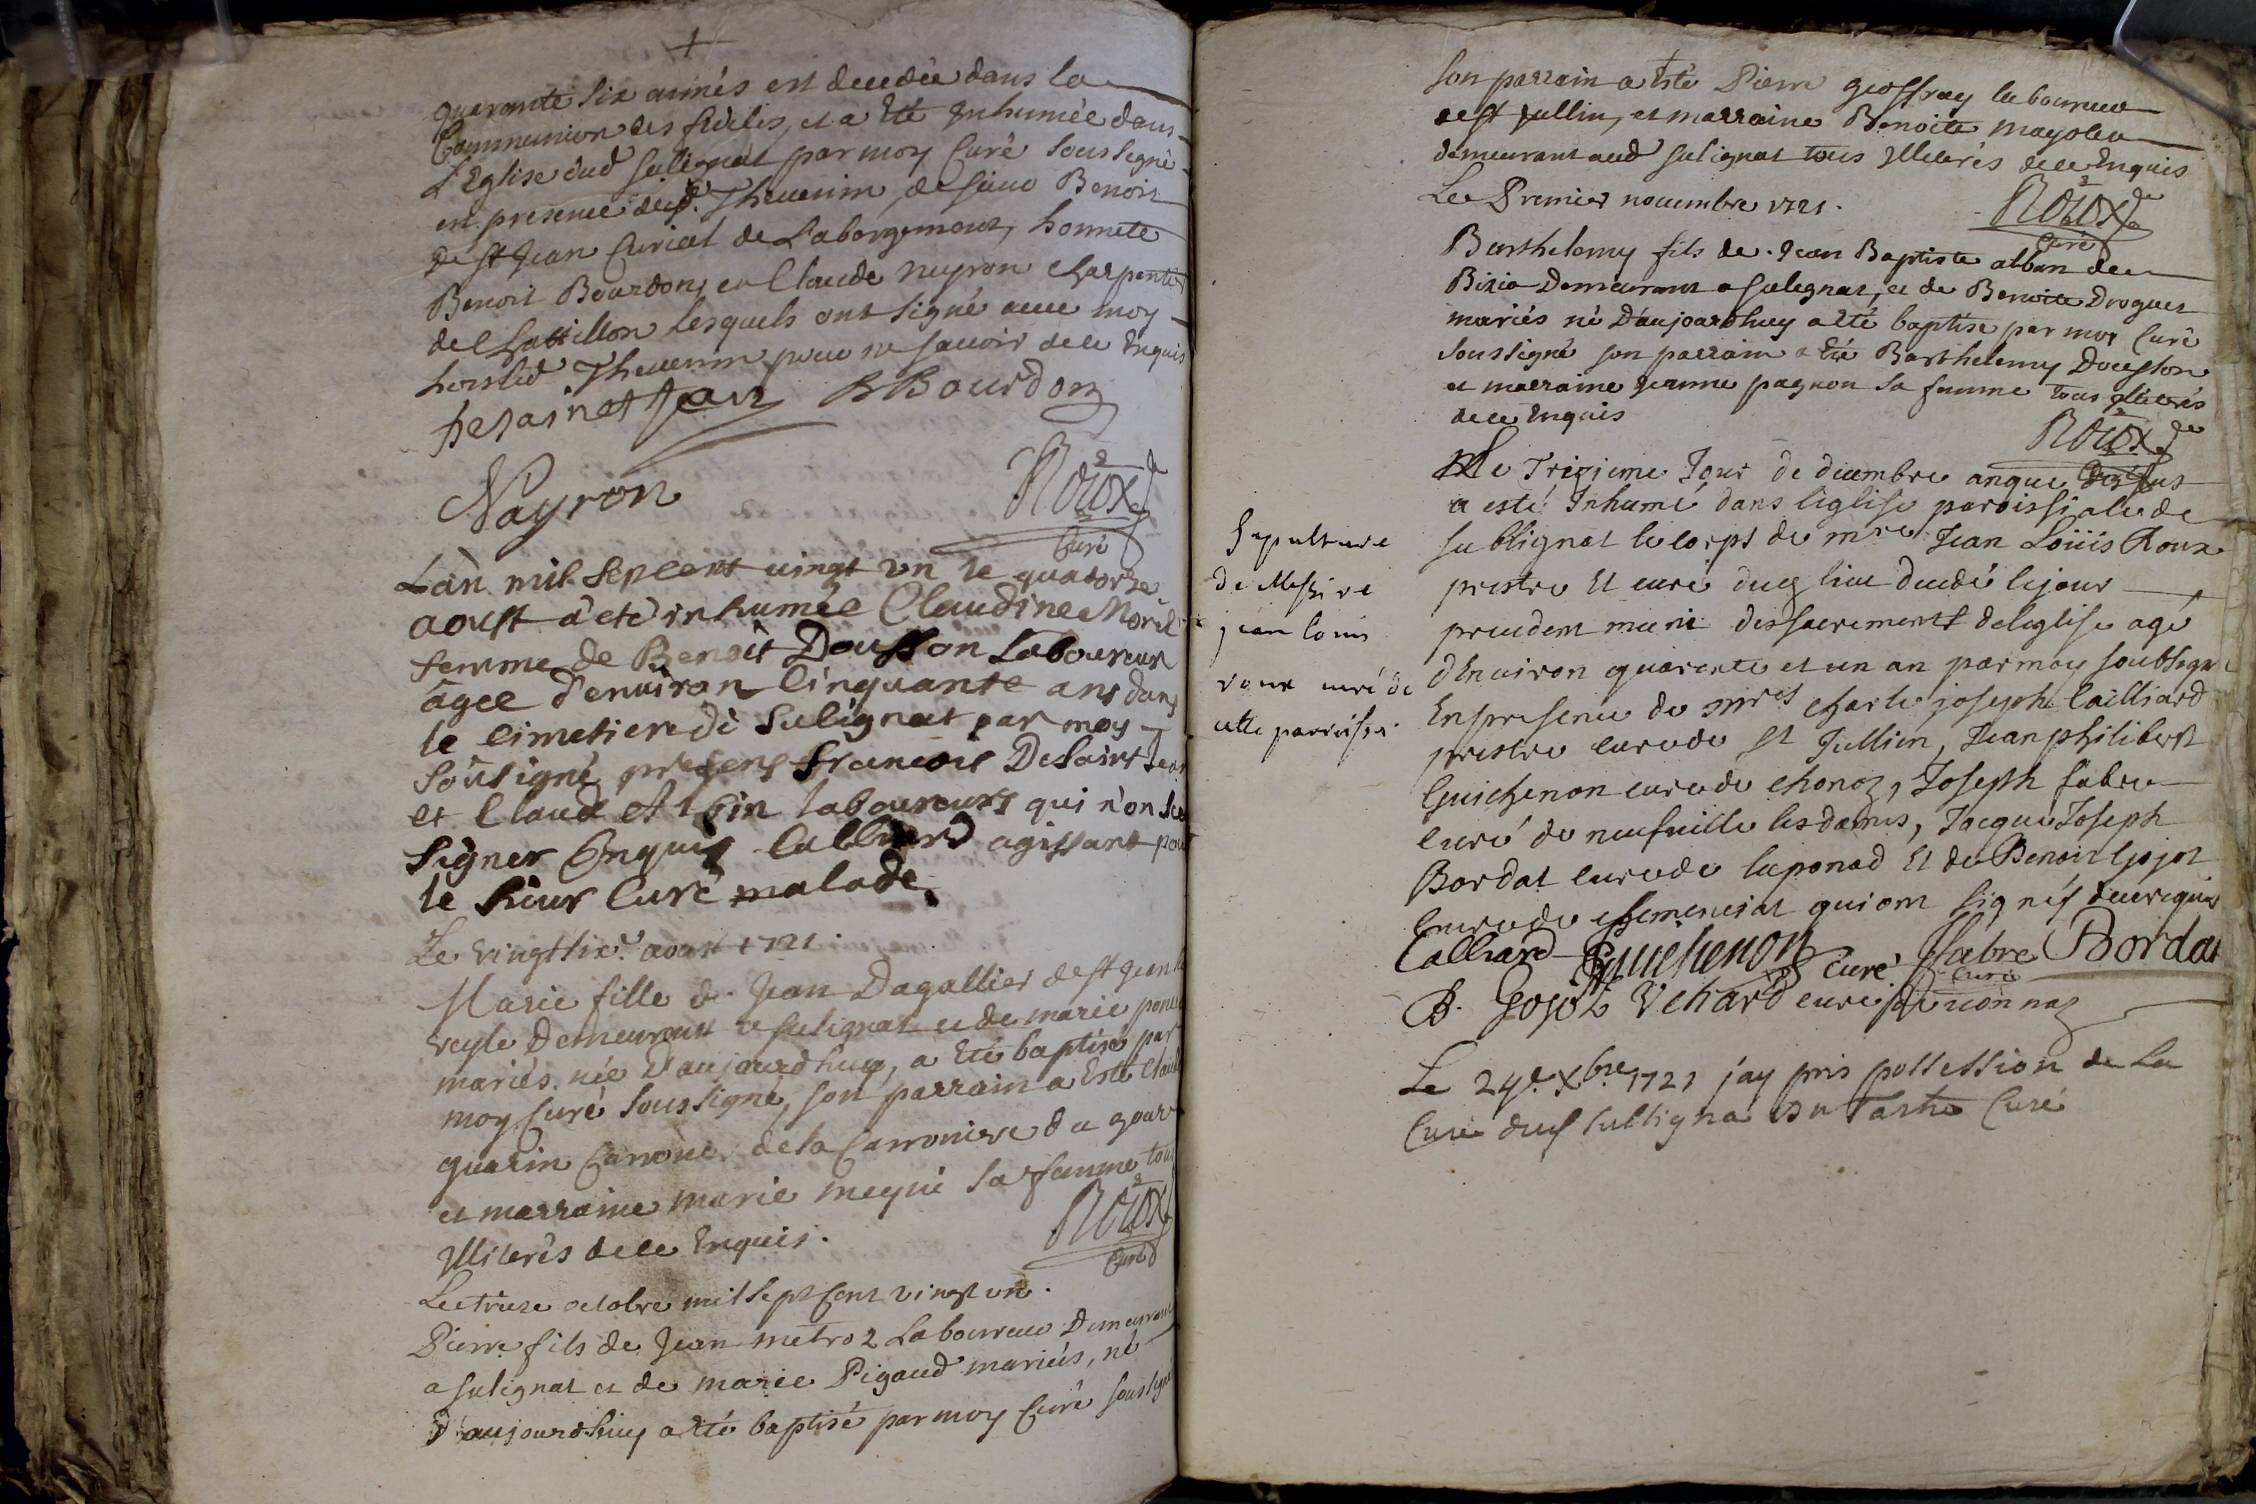 quarante six année est decedée dans la
Communion des fidelles, et a Eté Inhumée dans
L'Eglise dud Suligniat par moy Curé Soussigné
en presence dud. Thevenin, de sieur Benoit
De St Jean Curial de Labergement, honnete
Benoit Bourdon, et Claude neyron charpentier
de Chatillon Lesquels ont signé avec moy
horsled Thevenin pour ne savoir de ce Enquis
Desainct Jean B Bourdon
Nayron Roux
Curé
Lan mil Sepcent vingt vn le quatorze
aoust a eté inhumée Claudine Morel
femme de Benoit Dousson Laboureur
âgée d'environ Cinquante ans dans
le cimetiere de Sulignat par moy
Soûsigné presens francois DeSaint Jean
et Claude Albin laboureurs qui n'on Sceu
Signer Enquis Calliard agissant pour
le Sieur Curé malade.
Le vingtsix.e aoust 1721.
Marie fille de Jean Dagallier de st Jean
veyle Demeurant a sulignat et de marie
mariés née D'aujourdhuy, a Eté baptisé par
moy Curé Soussigné, son parrain a Esté Claude
guerin de la
et marraine marie sa femme tous
Illiterés de ce Enquis.
Roux
Curé
Le treize octobre mil sept Cent vingt un.
Pierre fils de Jean metroz Laboureur Demeurant
a sulignat et de marie Pigaud mariés, né
D'aujourdhuy a Eté baptisé par moy Curé soussigné
son parrain a Esté Pierre geoffray laboureur
de st Jullin, et marraine Benoite mayoleu
demeurant aud sulignat tous Illiterés de ce Enquis
Le Premier novembre 1721.
Roux
Curé
Barthelemy fils de Jean Baptiste alban de
Bizia Demeurant a sulignat, et de Benoite Drogues
mariés né D'aujourdhuy a Eté baptisé par moy Curé
soussigné son parrain a Eté Barthelemy Douson
et marraine jeanne pagnon sa femme tous Illiterés
de ce Enquis
Roux
Curé
Le Trezieme Jour de decembre anque dessus
a esté Inhumé dans leglise paroissialle de
sullignat le corps de mre Jean Loüis Roux
prestre Et curé dud lieu decedé lejour
precedent muni des sacrements de leglise agé
d'Environ quarente et un an par moy soubsigné
Enpresence de mres charle joseph Cailliard
prestre curé de st Jullien, Jean philibert
Guichenon curé de chonoz, Joseph fabre
curé de neufville les dames, Jacque Joseph
Bordat curé de laponod Et de Benoit Gojot
curé de chemenciat qui ont signés de ce requis
Calliard Guichenon curé ffabre Bordat
curé
B. Gojot Vehard curé
Le 24e. Xbre 1721 jay pris possession de La
Cure dud sulligna curé
Sepulture
de Messire
jean louis
roux curé de
cette parroisse.